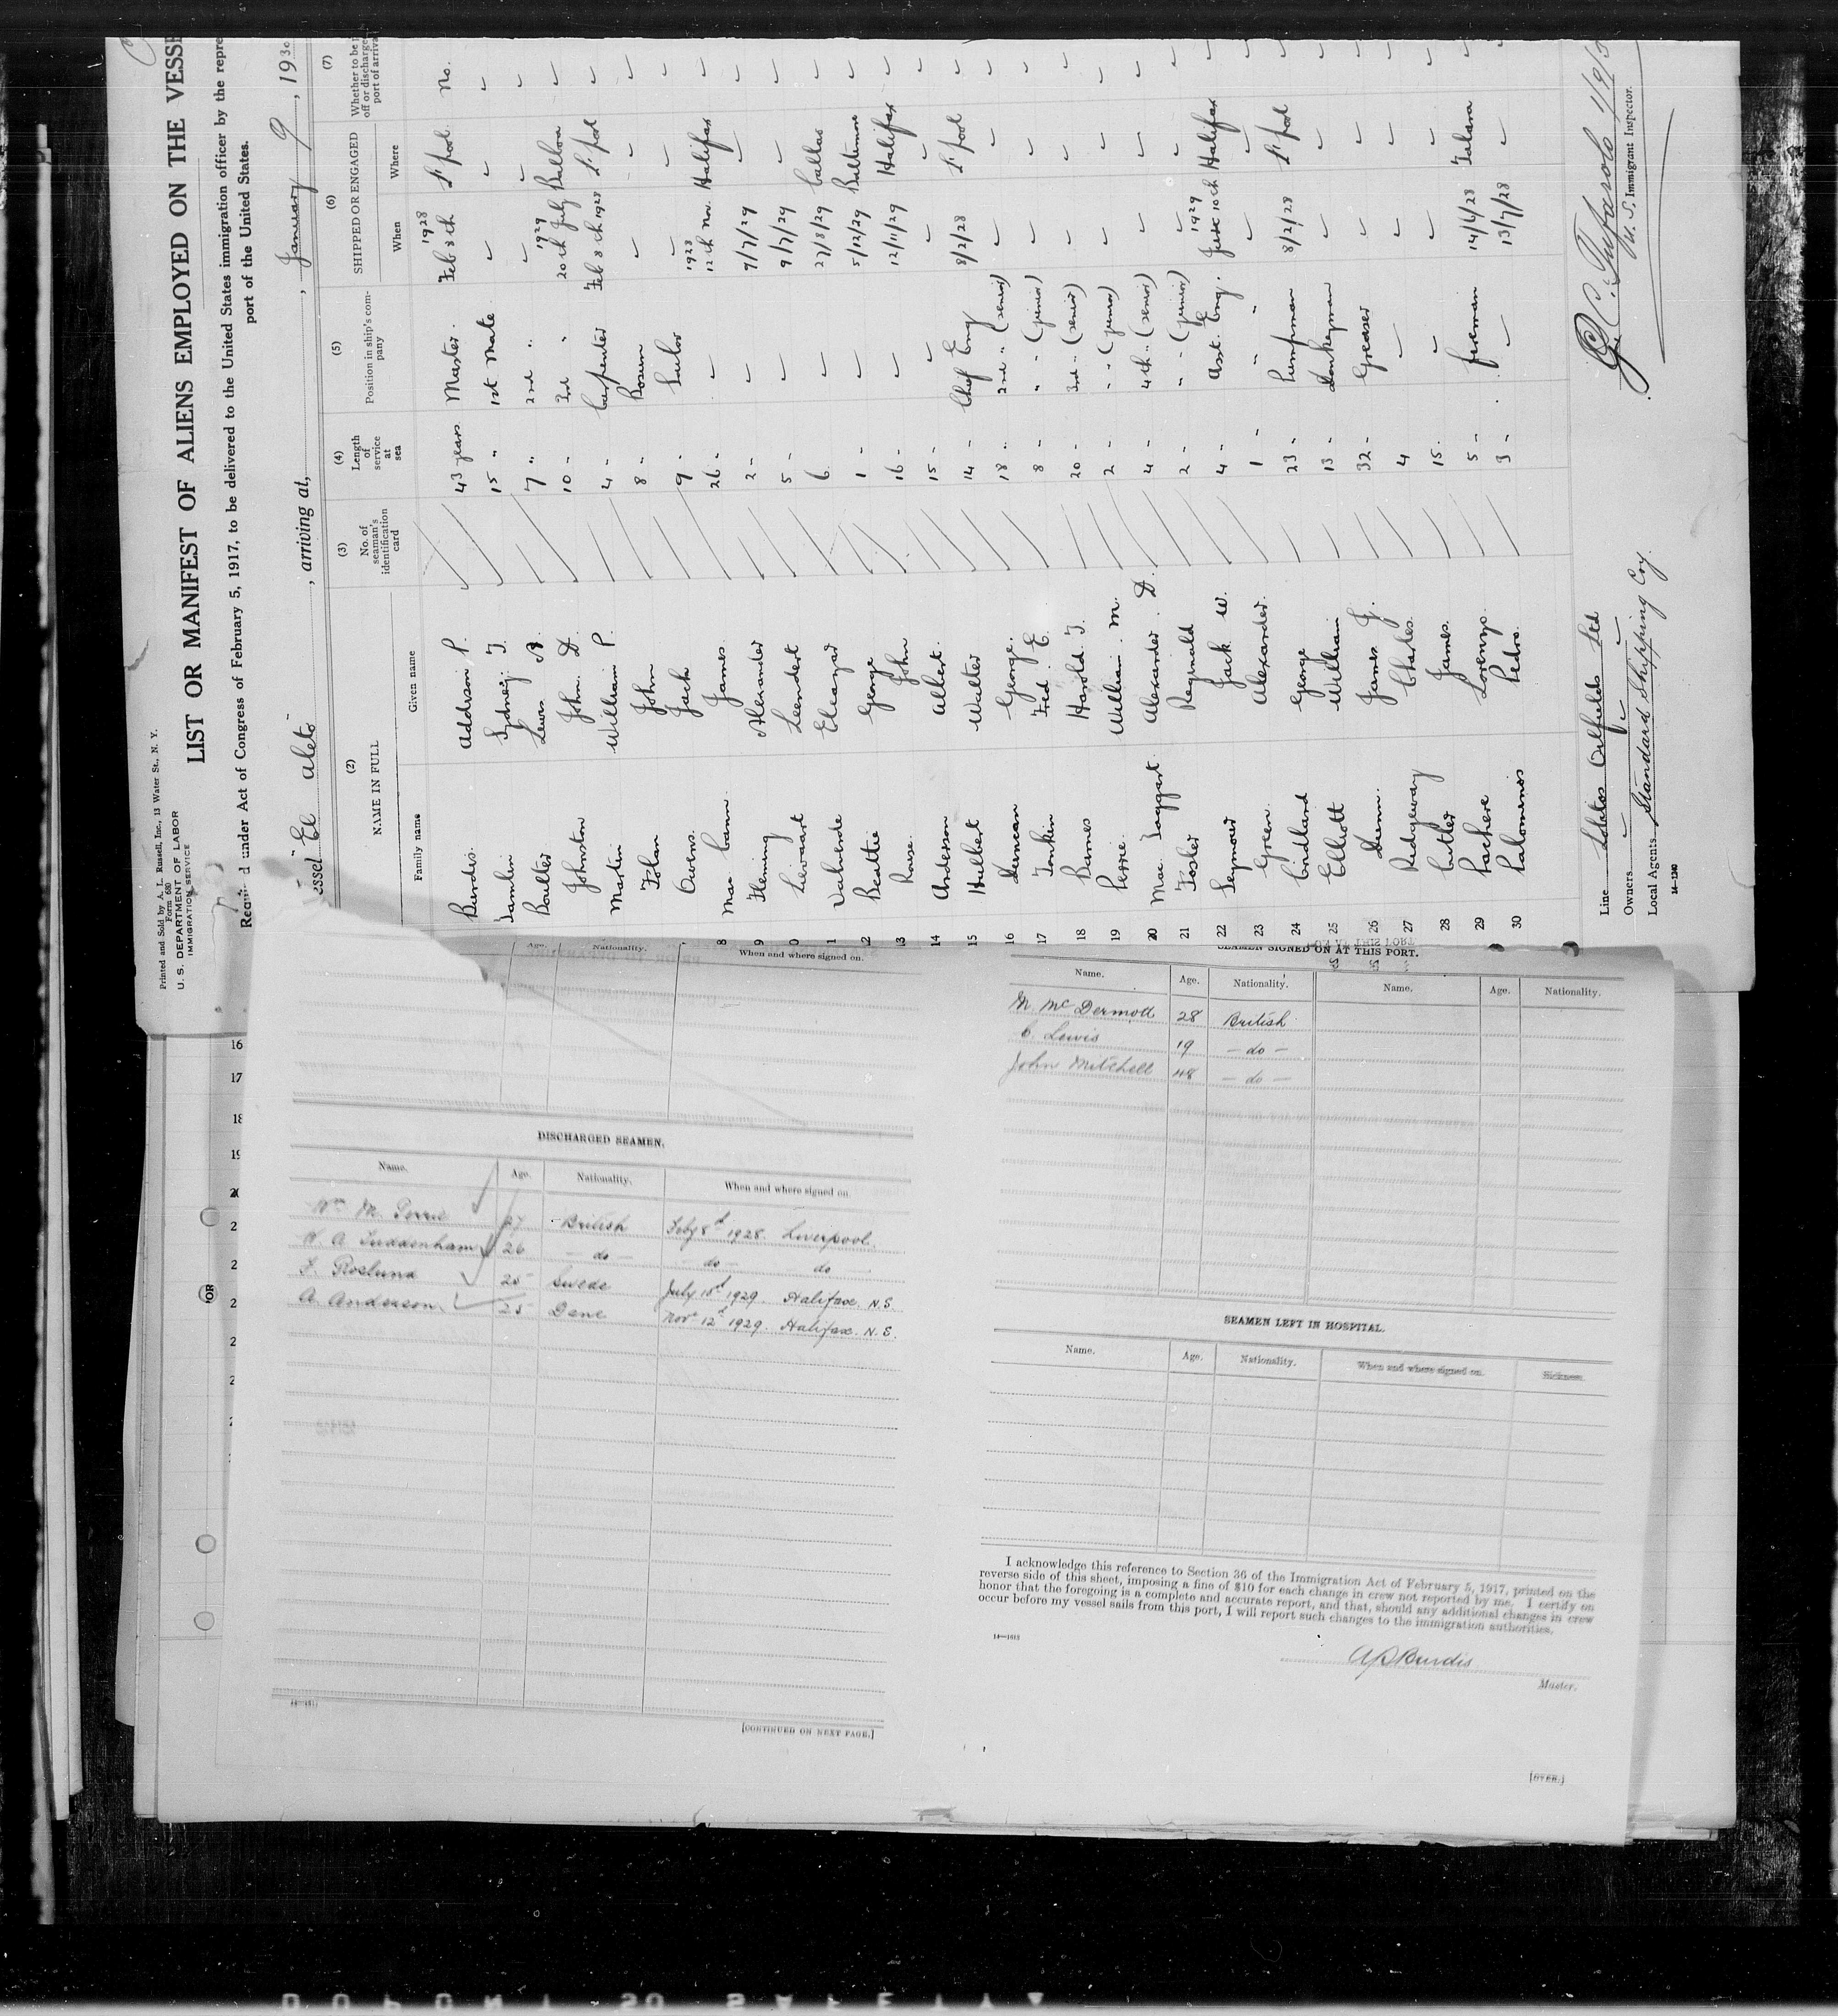 Printed and Sold by A. L. Russell, Inc., 13 Water St., N. Y.
Form 680
U. S. DEPARTMENT OF LABOR
IMMIGRATION SERVICE
LIST OR MANIFEST OF ALIENS EMPLOYED ON THE VESSE
under Act of Congress of February 5, 1917, to be delivered to the United States immigration officer by the repre
port of the United States.
essel "El Aleto" , arriving at, , January 9 , 1930
(2) (3) (4) (5) (6) (7)
NAME IN FULL No. of seaman's identification card Length of service at sea Position in ship's company SHIPPED OR ENGAGED Whether to be off or discharge port of arriva
Family name Given name When Where
Burdis. Addison P. 43 years Master. 1928 Feb 8th L'pool. No.
Tamlin Sydney. T. 15 " 1st Mate
Boulter Lewis A. 7 " 2nd "
Johnston John. D. 10 - 3rd " 1929 20th July Balboa
Martin William P. 4 - Carpenter Feb 8th 1928 L'pool
Tolan John 8 - Bosun
Owens. Jack 9 - Sailor
8 Mac Cann. James 26 - 1928 12th Nov. Halifax
9 Fleming Alexander 2 - 9/7/29
0 Lievaart Leendert 5 - 9/7/29
1 Valverde Eleazar 6 27/8/29 Callao
12 Beattie George 1 - 5/12/29 Baltimore
13 Rouse. John 16 - 12/11/29 Halifax
14 Anderson Albert. 15 -
15 Hulbert Walter 14 - Chief Eng 8/2/28 L'pool
16 Duncan George. 18 " 2nd " (senior)
17 Tonkin Fred. E. 8 - " " (junior)
18 Barnes Harold. T. 20 - 3rd " (senior)
19 Perrie. William. M. 2 - " " (junior)
20 Mac Taggart Alexander. D. 4 - 4th " (senior)
21 Foster Reginald 2 - " " (junior)
22 Seymour Jack W. 4 - Asst. Eng. 1929 10th Halifax
23 Green. Alexander. 1 - " "
24 Cridland George 23 - Pumpman 8/2/28 L'pool
25 Elliott William 13 - Donkeyman
26 Dunn. James J. 32 - Greaser
27 Ridgeway Charles. 4
28 Cutler James. 15.
29 Pachere Lorenzo. 5 - Fireman 14/4/28 Talara
30 Palominos Pedro. 3 - 13/7/28
Line Lobitos Oilfields Ltd
Owners
Local Agents Standard Shipping Coy.
14—1240
U. S. Immigrant Inspector.
Age. Nationality. When and where signed on.
DISCHARGED SEAMEN.
Name. Age. Nationality. When and where signed on.
Wm M. Perrie 27 British Feby 8th 1928. Liverpool.
A. Tuddenham 26 — do — — do — do —
F. Roslund 25 Swede July 10th 1929. Halifax. N.S.
A. Anderson 25 Dane Nov 12th 1929. Halifax. N.S.
[CONTINUED ON NEXT PAGE.]
SEAMEN SIGNED ON AT THIS PORT.
Name. Age. Nationality. Name. Age. Nationality.
M McDermott 28 British
C. Lewis 19 — do —
John Mitchell 48 — do —
SEAMEN LEFT IN HOSPITAL.
Name. Age. Nationality. When and where signed on. Sickness.
I acknowledge this reference to Section 36 of the Immigration Act of February 5, 1917, printed on the
reverse side of this sheet, imposing a fine of $10 for each change in crew not reported by me. I certify on
honor that the foregoing is a complete and accurate report, and that, should any additional changes in crew
occur before my vessel sails from this port, I will report such changes to the immigration authorities.
14—1612
A P Burdis
Master.
[OVER.]
16
17
18
19